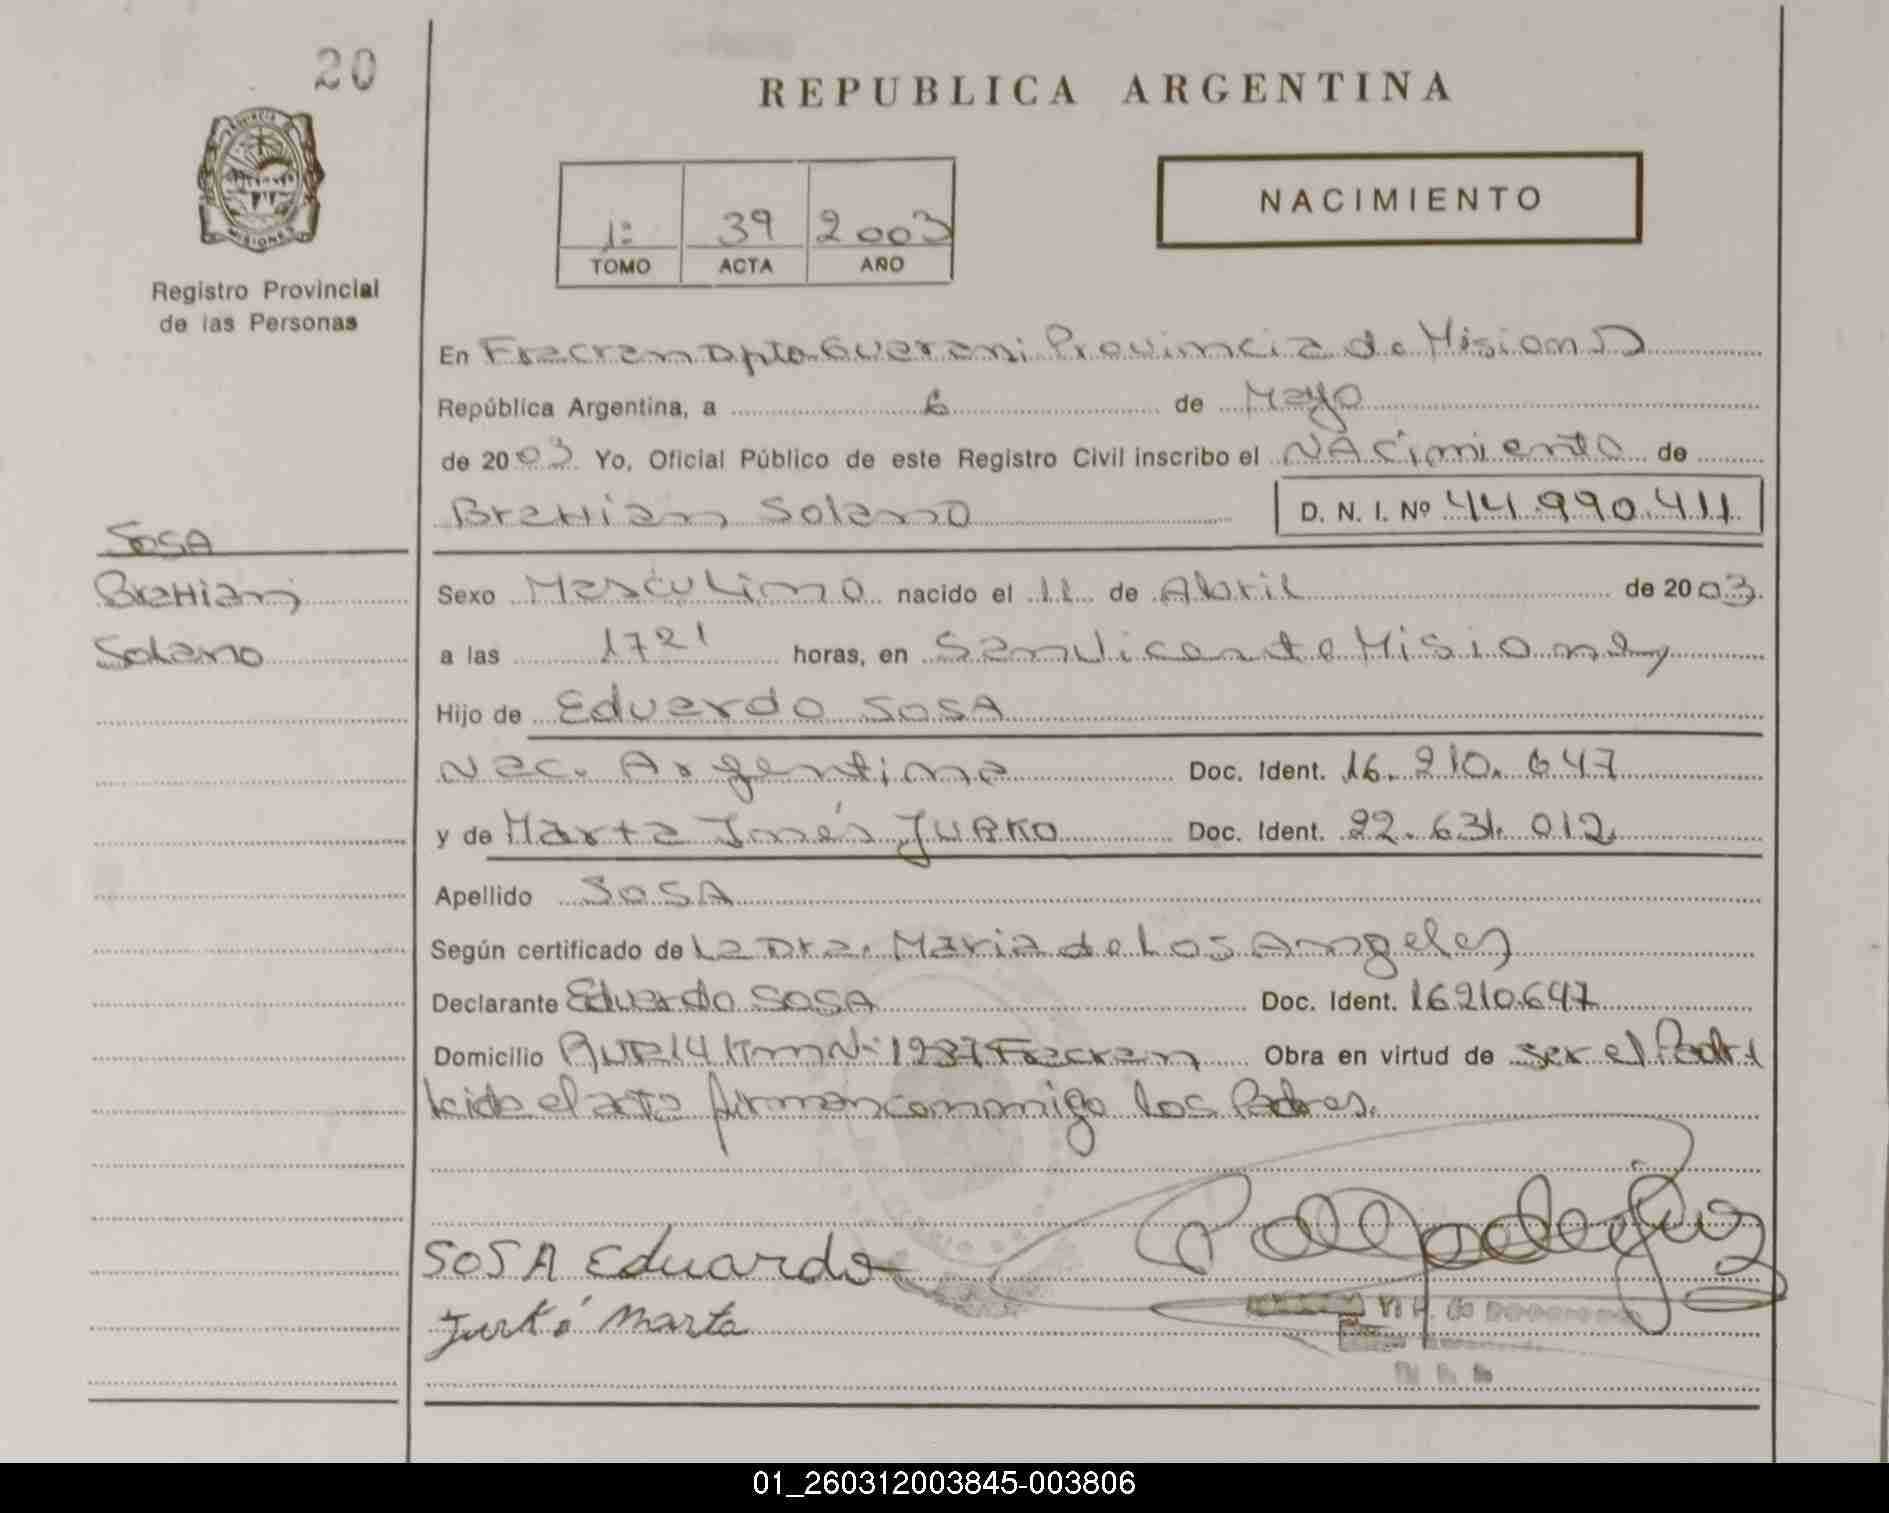 20
PROVINCIA DE
MISIONES
Registro Provincial
de las Personas
REPUBLICA ARGENTINA
1º 39 2003
TOMO ACTA AÑO
NACIMIENTO
En Fracran Dpto Guarani Provincia de Misiones
República Argentina, a 6 de Mayo
de 2003 Yo, Oficial Público de este Registro Civil inscribo el NACimiento de
BraHian Solano D. N. I. Nº 44.990.411
SOSA
BraHian
Solano
Sexo Masculino nacido el 11 de Abril de 2003.
a las 1721 horas, en San Vicente Misiones
Hijo de Eduardo SOSA
Nac. Argentina Doc. Ident. 16.210.647
y de Marta Inés JURKO Doc. Ident. 22.631.012.
Apellido SOSA
Según certificado de La Dra. Maria de Los Angeles
Declarante Eduardo SOSA Doc. Ident. 16210647
Domicilio Ruta 14 Km Nº 1237 Fracran Obra en virtud de ser el Padre
Leida el acta firman conmigo los Padres.
SOSA Eduardo
Jurkó Marta
01_260312003845-003806